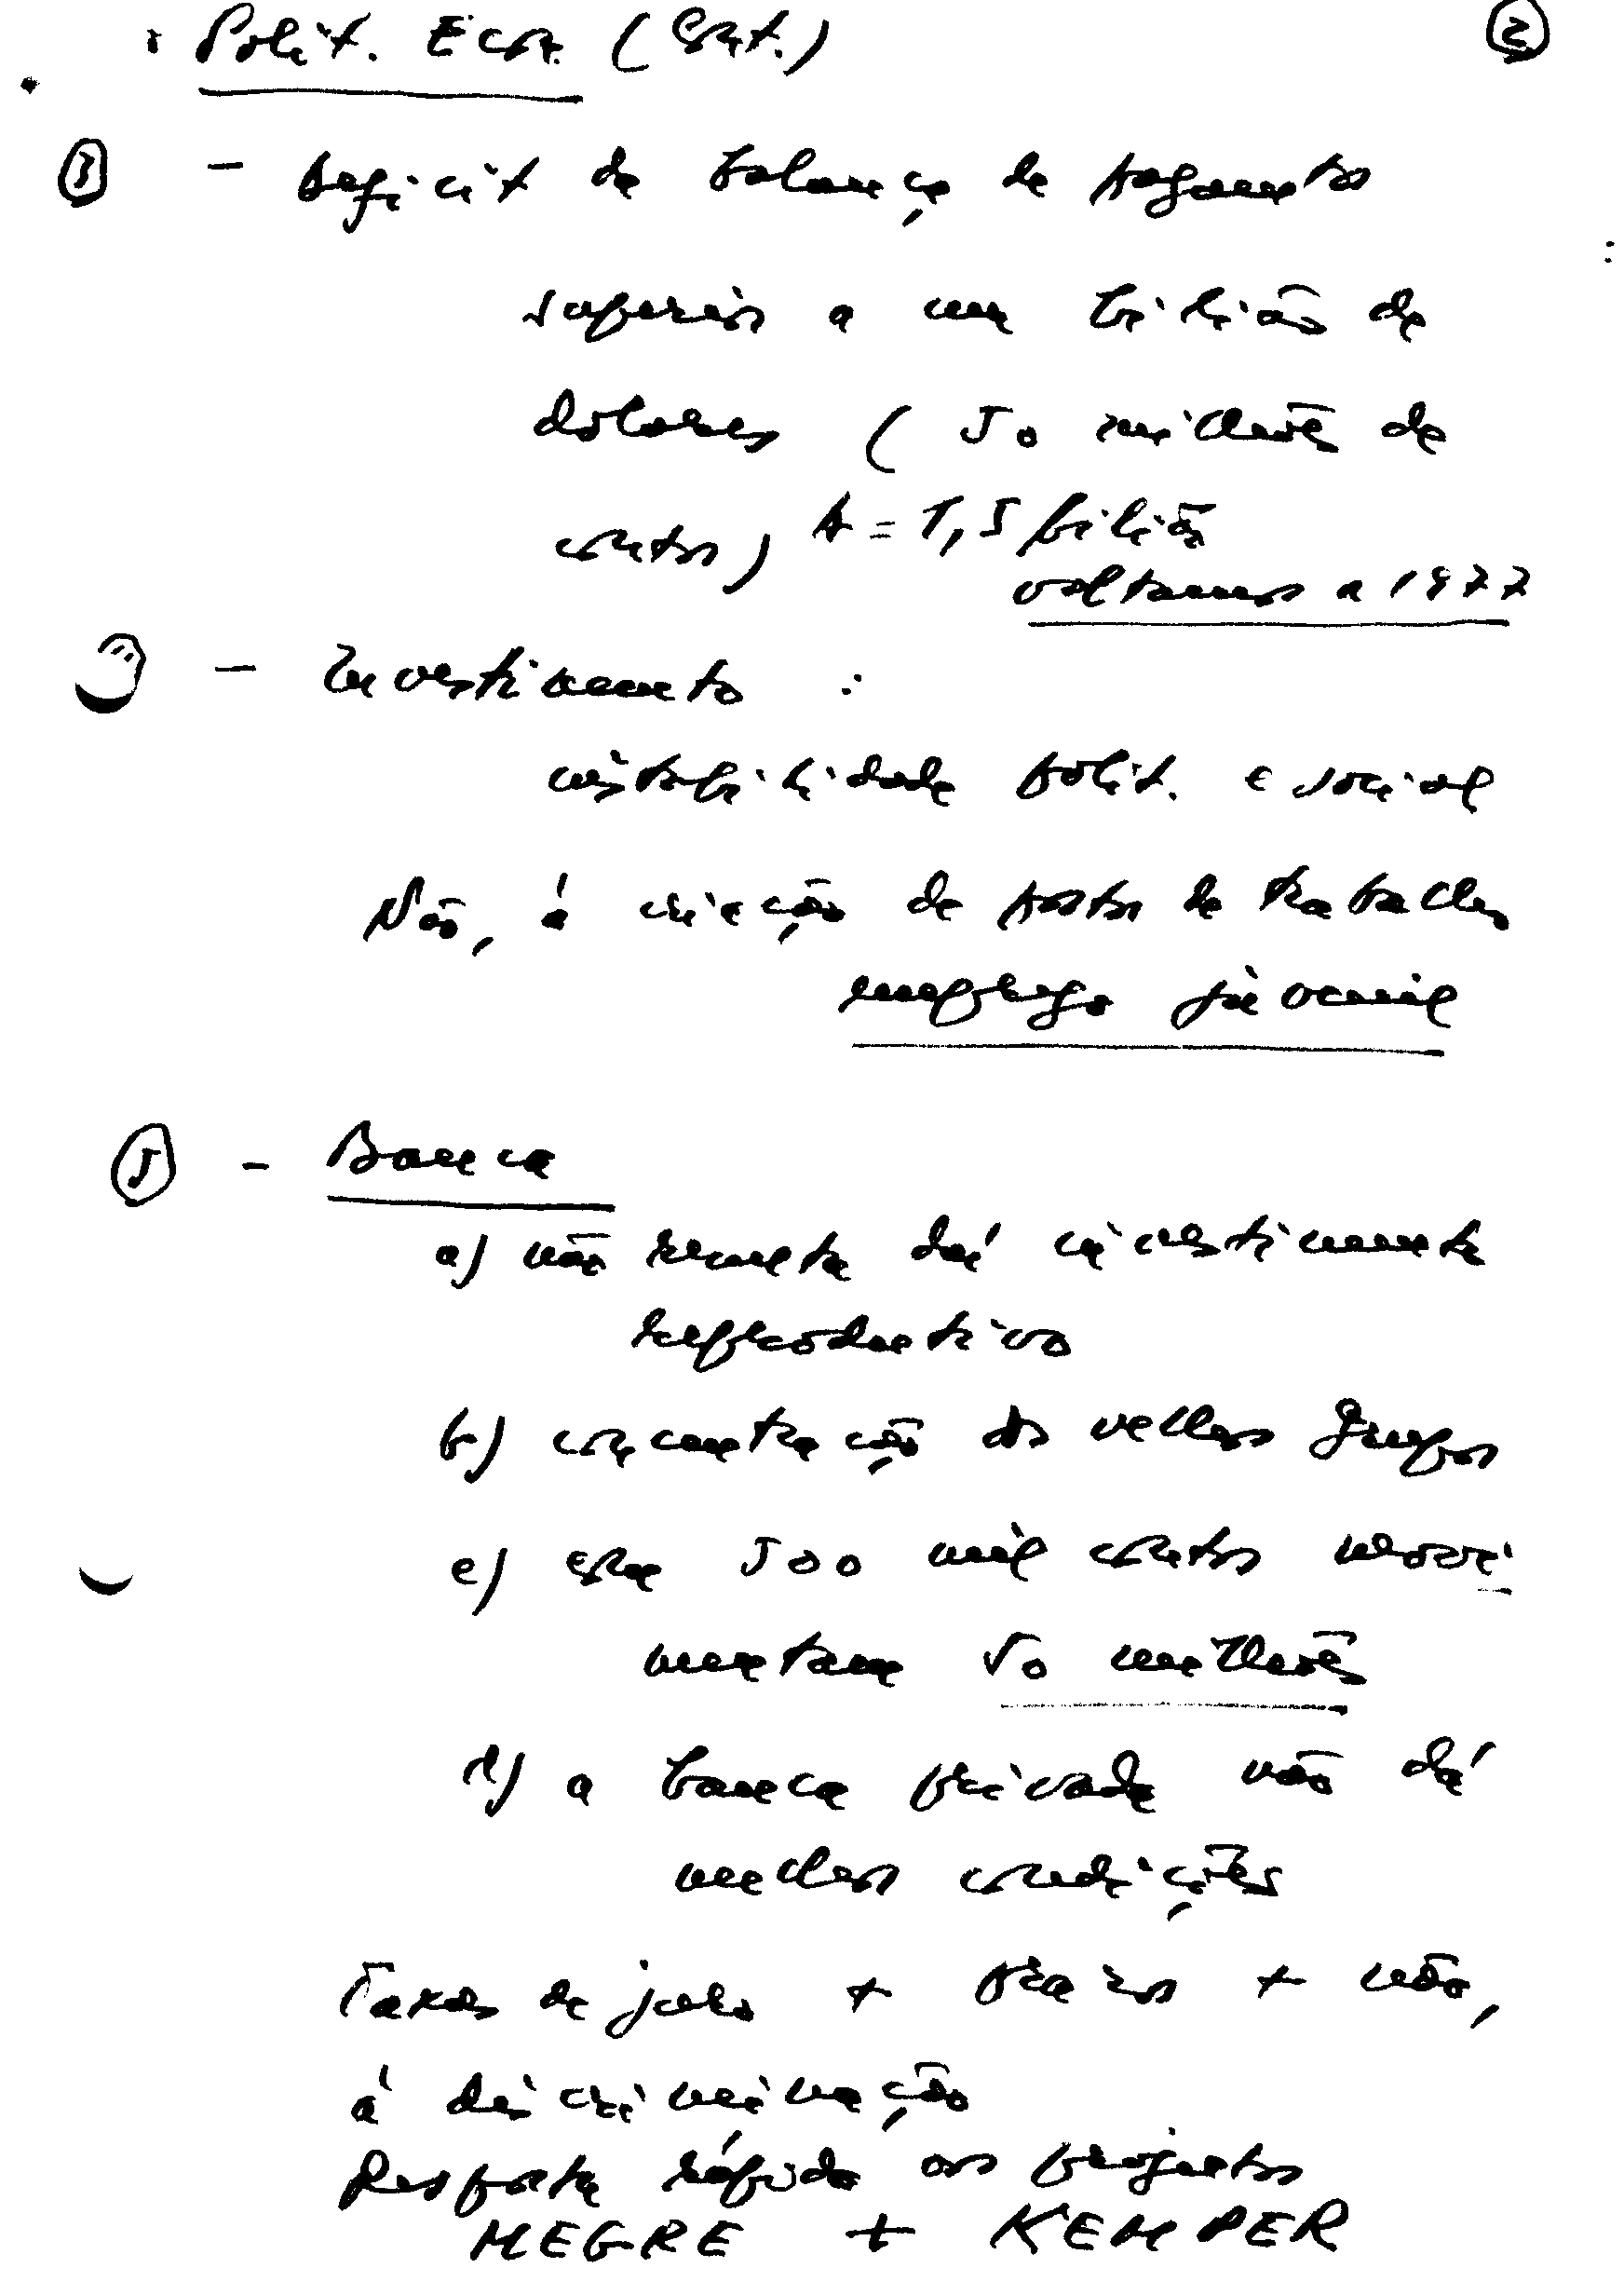 Polít. Econ. (Cont.) 2
3 - Deficit de balança de pagamentos
superior a um bilião de
dolares (50 milhões de
contos) = 1,5 biliões
voltamos a 1977
- Investimento :
instabilidade polít. e social
Não, á criação de postos de trabalho
emprego juvenil
5 - Banca
a) não remete daí investimento
reprodutivo
b) concentração dos velhos grupos
c) com 500 mil contos movi
mentam 50 milhões
d) a banca privada não dá
melhores condições
Taxas de juro + prazos + não,
á discriminação
Resposta rápida aos projectos
MEGRE + KEMPER